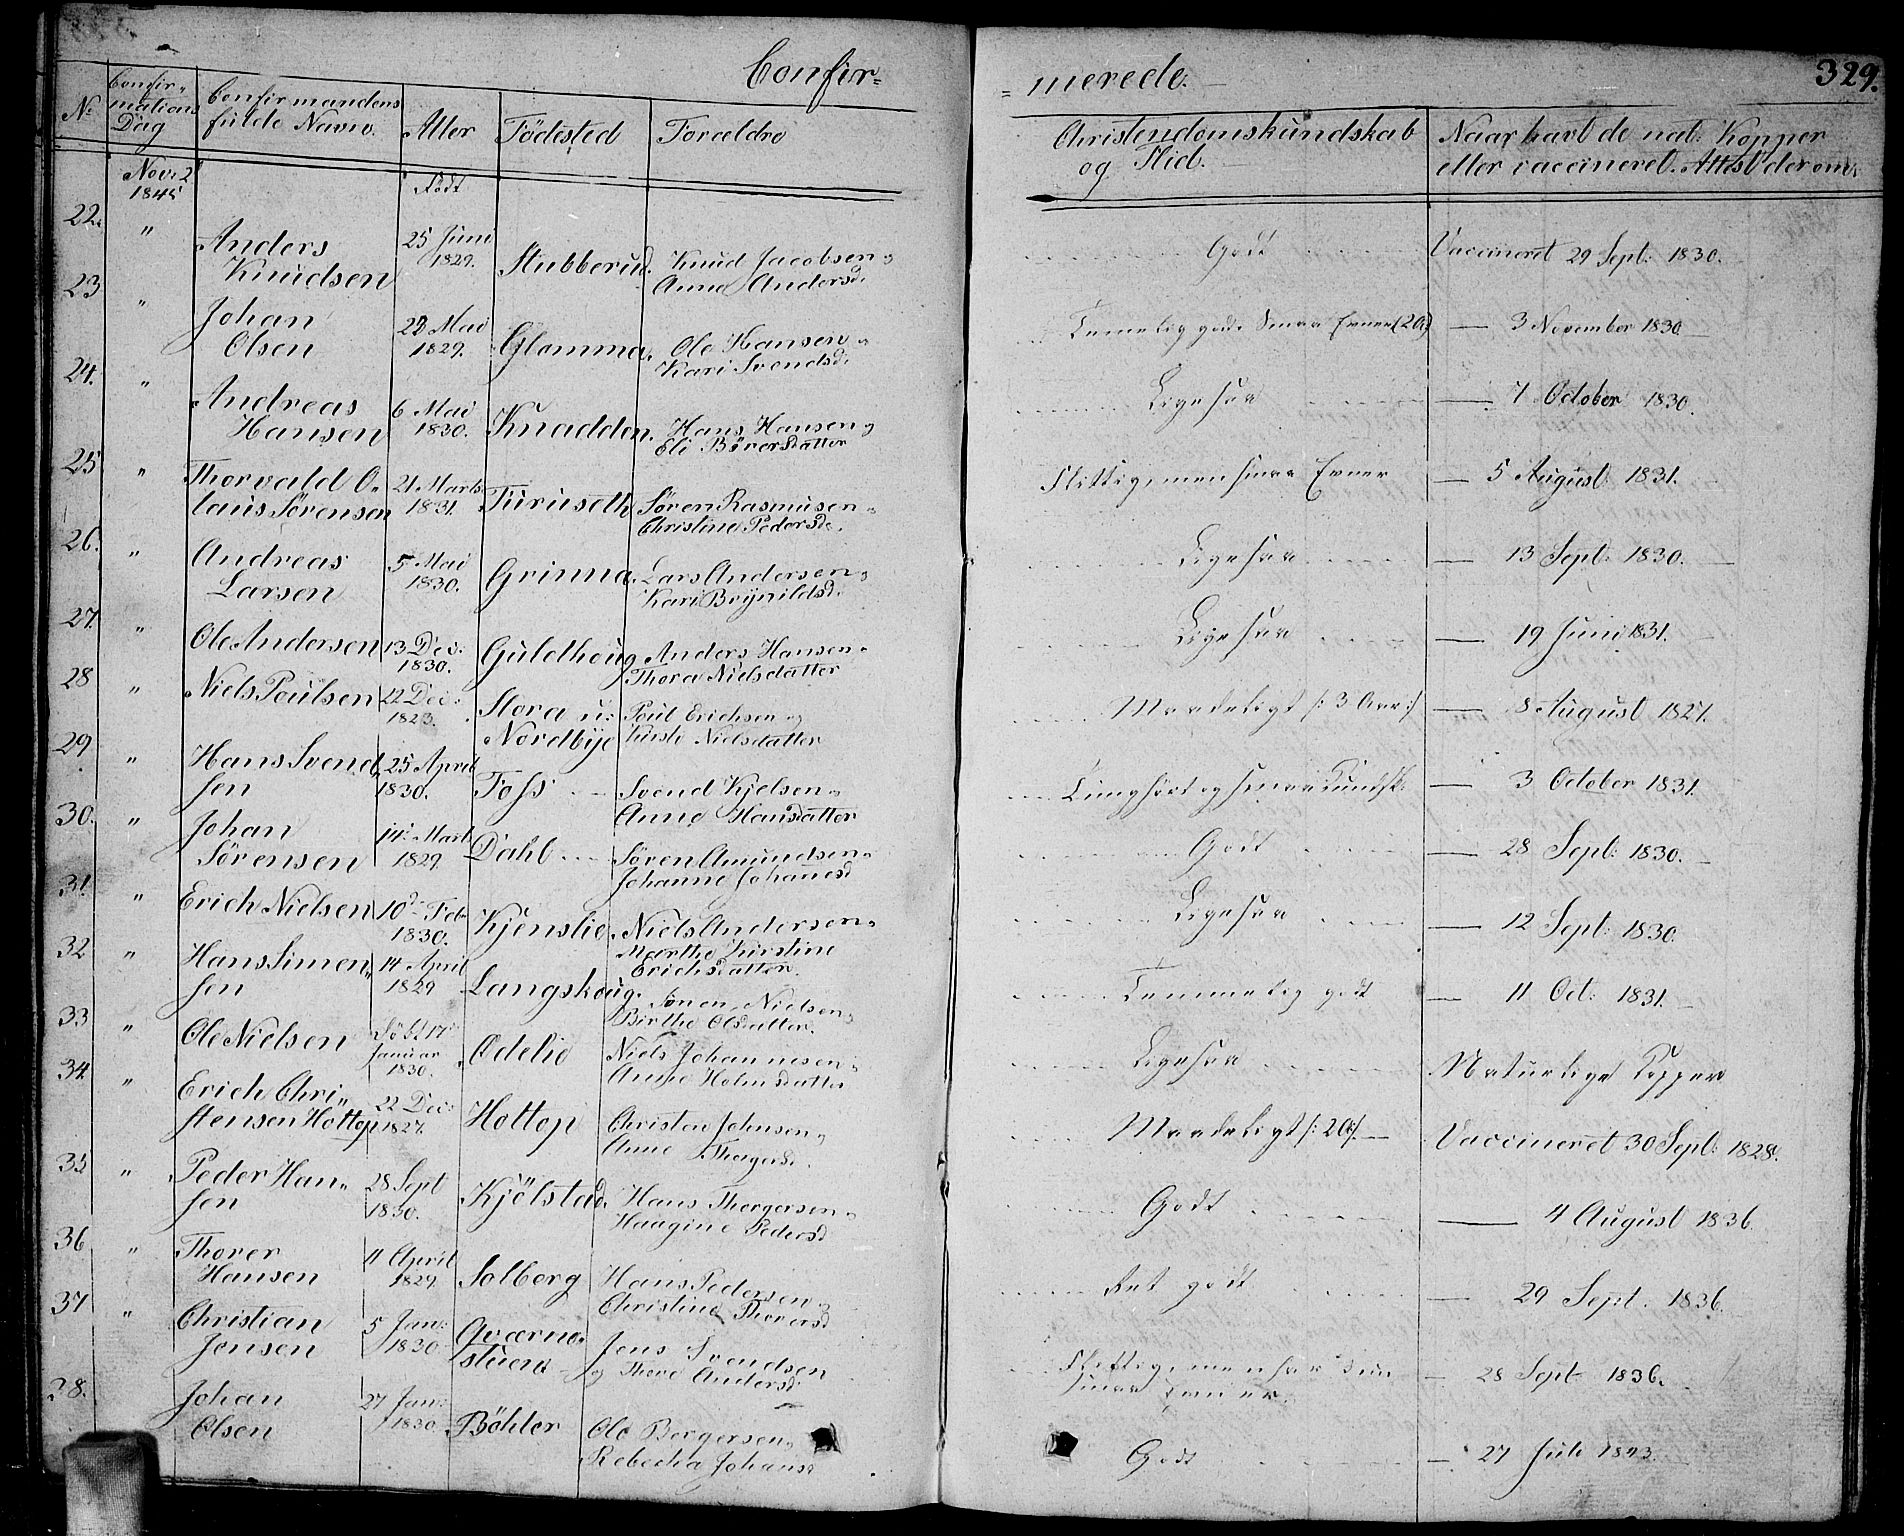 Confir=
merede.
329.
No
Confir-
mations
Dag
Confirmandens
fulde Navn.
Alter
Födested
Forældre
Christendomskundskab
og Flid.
Naar havt de nat: Kopper
eller vaccineret. Attest derom.
Nov: 2
1845
Födt
22. " Anders
Knudsen
25 Juni
1829.
Stubberud.
Knud Jacobsen og
Anne Andersd.
Godt
Vaccineret 29 Sept: 1830.
23 " Johan
Olsen
23 Mai
1829.
Glomma.
Ole Hansen og
Kari Svendsd.
Temelig godt. Smaa Evner
— 3 November 1830
24. " Andreas
Hansen
6 Mai
1830.
Knadden.
Hans Hansen og
Eli Börersdatter
Ligesaa
— 7 October 1830.
25 " Thorvald O-
laus Sörensen
21 Marts
1831.
Turuseth
Sören Rasmusen og
Christine Pedersd.
Flittig, men smaa Evner
— 5 August 1831.
26. " Andreas
Larsen
5 Mai
1830.
Grinna.
Lars Andersen og
Kari Brynildsd.
Ligesaa
— 13 Sept: 1830.
27. " Ole Andersen
13 Dec:
1830.
Guldhoug
Anders Hansen
Thora Nielsdatter
Ligesaa
— 19 Juni 1831.
28 " Niels Poulsen
22 Dec:
1823.
Stora u:
Nordbye
Poul Erichsen og
Kirste Nielsdatter
Maadeligt /: 3 Aar :/
— 8 August 1827.
29 " Hans Svend-
sen
25 April
1830.
Foss
Svend Kjelsen og
Anne Hansdatter
Tunghört og smaa Kundsk:
— 3 October 1831.
30. " Johan
Sörensen
14 Mart
1829.
Dahl
Sören Amundsen
Johanne Johanesd
Godt
— 28 Sept: 1830.
31. " Erich Nielsen
10 Feb
1830.
Kjenslie.
Niels Andersen
Marthe Kirstine
Erichsdatter.
Ligesaa
— 12 Sept: 1830.
32 " Hans Simen-
sen
14 April
1829
Langskoug.
Simen Nielsen og
Birthe Olsdatter.
Temmelig godt
— 11 Oct: 1831.
33 " Ole Nielsen
Födt 17
Januar
1830.
Ödelie
Niels Johannesen og
Anne Holmsdatter
Ligesaa
Naturlige Kopper
34. " Erich Chri-
stensen Hottop
22 Dec:
1827.
Hottop
Christen Johnsen og
Anne Thorgersd.
Maadeligt
Vaccineret 30 Sept: 1828.
35 " Peder Han-
sen
28 Sept
1830.
Kjölstad.
Hans Thorgersen og
Haagine Pedersd
Godt
— 4 August 1836.
36 " Thorer
Hansen
11 April
1829.
Solberg
Hans Pedersen og
Christine Thorersd
Ret godt
— 29 Sept. 1836.
37 " Christian
Jensen
5 Jan:
1830
Qværne-
stuen
Jens Svendsen
og Thore Andersd.
Flittig, men har kun
smaa Evner.
— 28 Sept 1836.
38. Johan
Olsen
27 Jan:
1830.
Böhler
Ole Bergersen og
Rebecka Johans
Godt
— 27 Juli 1843.